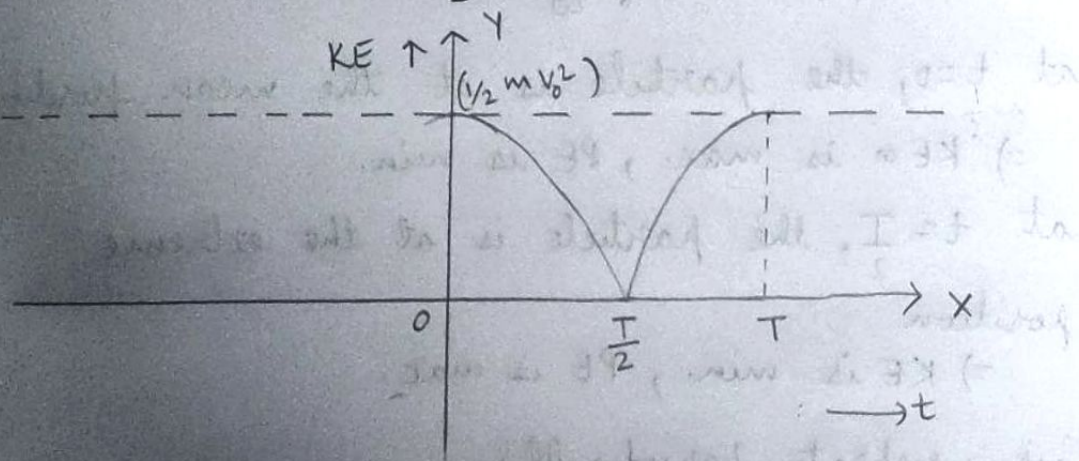 Y
KE ↑
(1/2 m v₀²)
O
T/2
T
X
→ t